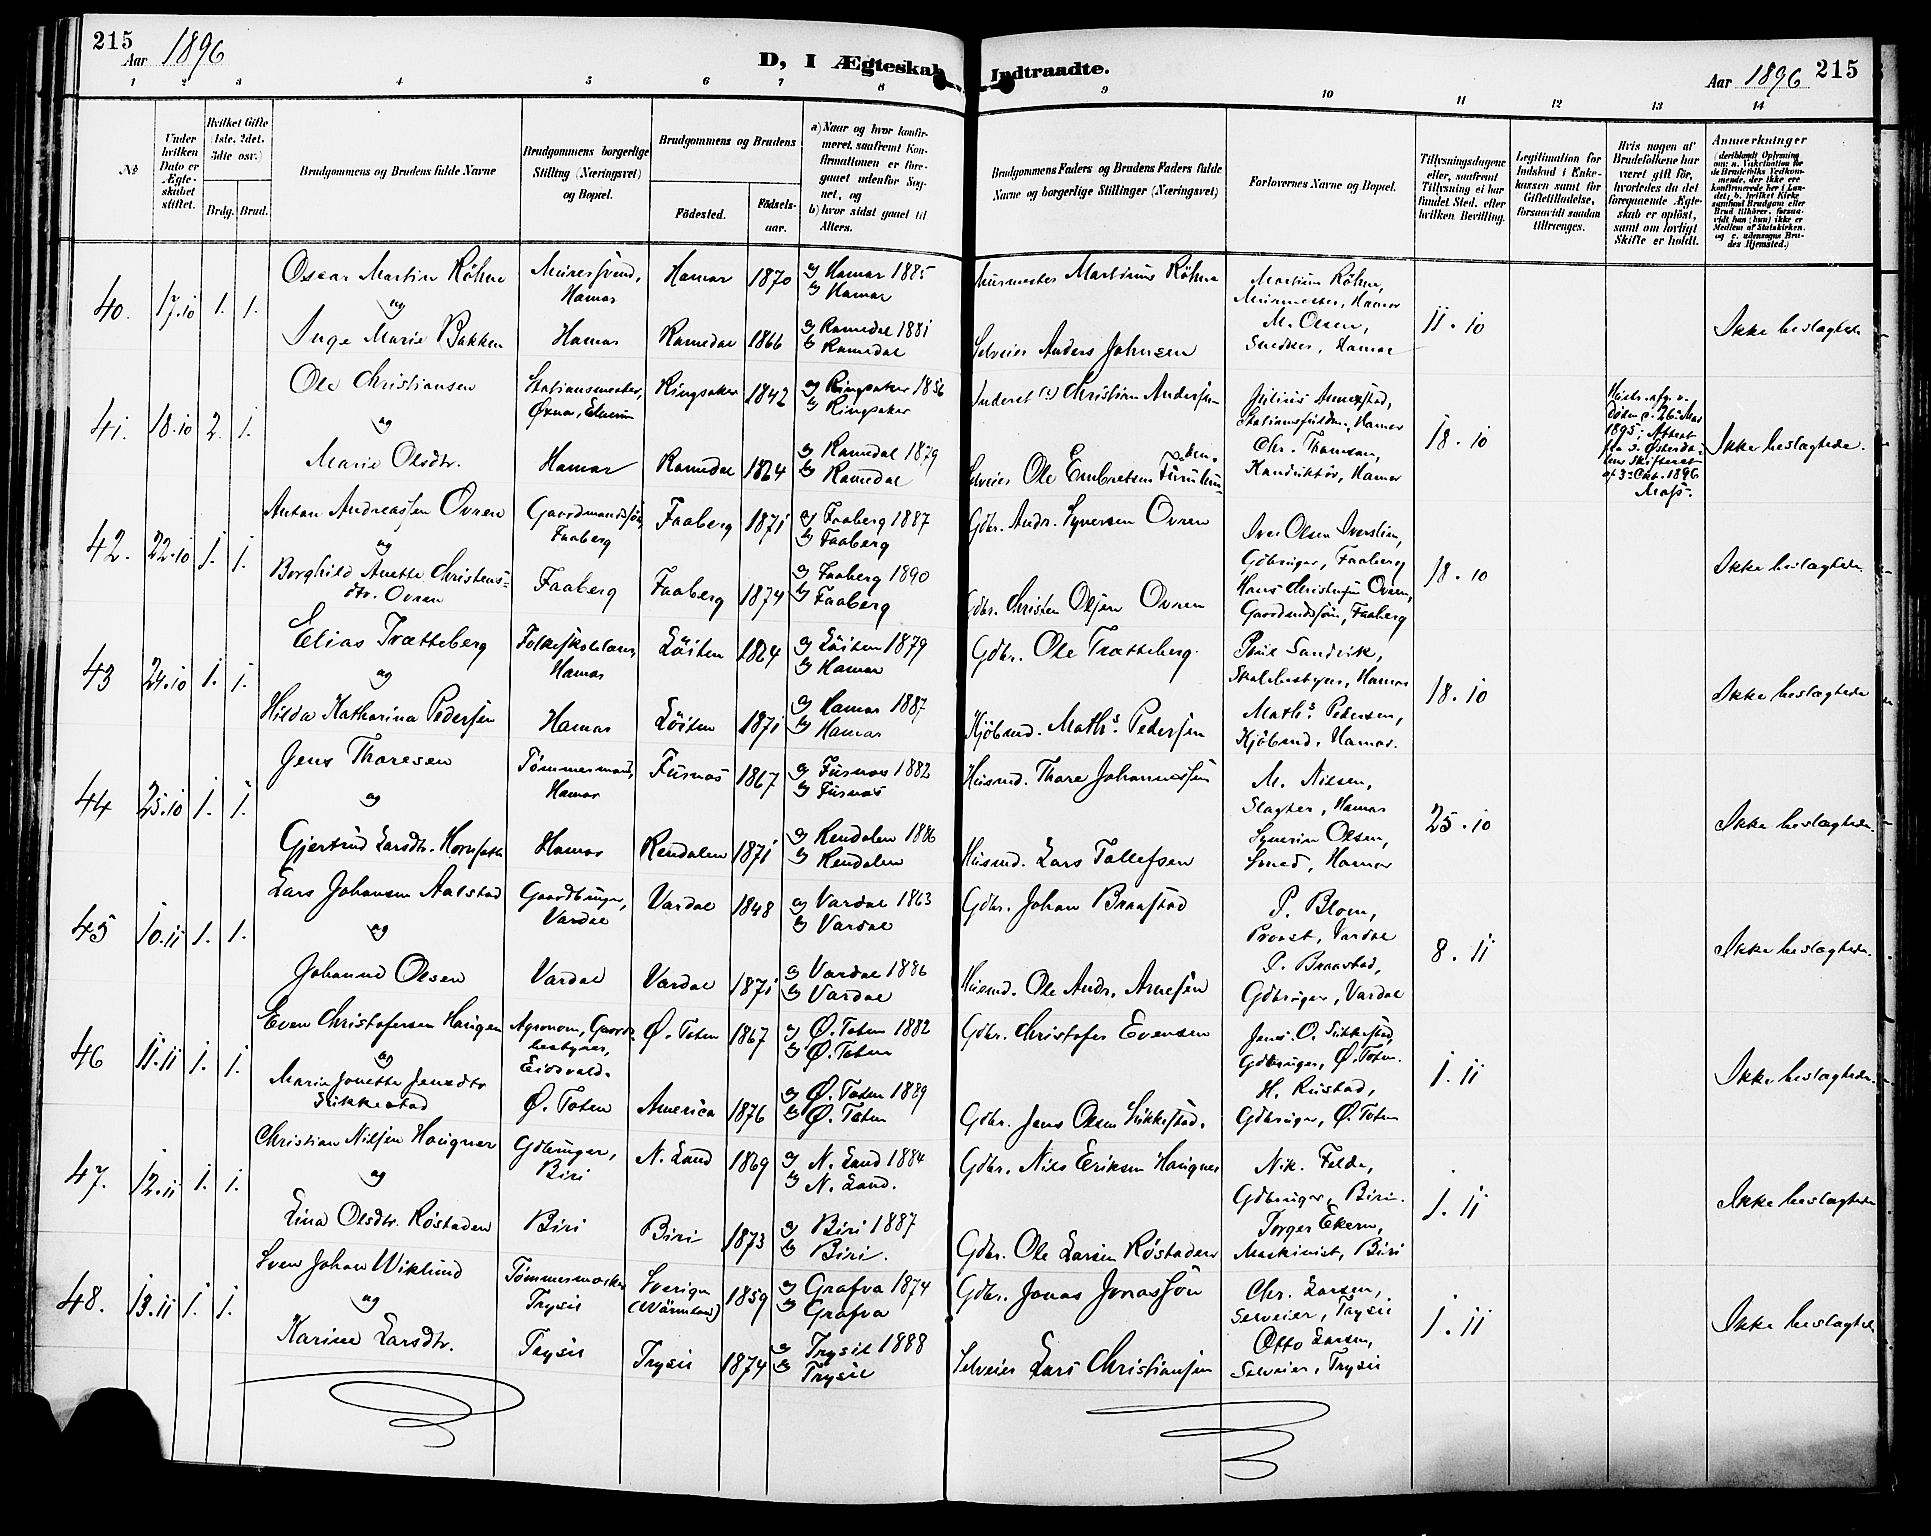 215
Aar 1896
D, I Ægteskab Indtraadte.
Aar 1896
215
1 2 3 4 5 6 7 8 9 10 11 12 13 14
No
Under hvilken Dato er Ægteskabet stiftet.
Hvilket Gifte (1ste, 2det, 3die osv.)
Brdg. Brud.
Brudgommens og Brudens fulde Navne
Brudgommens borgerlige Stilling (Næringsvei) og Bopæl.
Brudgommens og Brudens
Fødested.
Fødselsaar.
a) Naar og hvor konfirmeret, saafremt Konfirmationen er foregaaet udenfor Sognet, og
b) hvor sidst gaaet til Alters.
Brudgommens Faders og Brudens Faders fulde Navne og borgerlige Stillinger (Næringsvei)
Forlovernes Navne og Bopæl.
Tillysningsdagene eller, saafremt Tillysning ei har fundet Sted, efter hvilken Bevilling.
Legitimation for Indskud i Enkekassen samt for Giftetilladelse, forsaavidt saadan tiltrænges.
Hvis nogen af Brudefolkene har været gift før, hvorledes da det foregaaende Ægteskab er opløst, samt om lovligt Skifte er holdt.
Anmerkninger
40. 17.10 1. 1.
Oscar Martin Röhne
og
Inge Marie Bakken
Murersvend, Hamar
Hamar
Hamar 1870
Romedal 1866
a) Hamar 1885
b) Hamar
a) Romedal 1881
b) Romedal
Murmester Martinus Röhne
Selveier Anders Johnsen
Martinus Röhne,
Murmester, Hamar
M. Olsen,
Snedker, Hamar
11.10
Ikke beslægtede
41. 18.10 2. 1.
Ole Christiansen
og
Marie Olsdtr.
Stationsmester,
Øxna, Elverum
Hamar
Ringsaker 1842
Romedal 1864
a) Ringsaker 1856
b) Ringsaker
a) Romedal 1879
b) Romedal
Inderst (?) Christian Andersen
Selveier Ole Embretsen
Julius
Hamar
Chr. Thomsen,
Konduktör, Hamar
18.10
1895; Attest
fra S. Østerdalens Skifteret
af 3. Okt. 1896
Ikke beslægtede.
42. 22.10 1. 1.
Anton Andreassen Ovren
og
Borghild Anette Christensdtr. Ovren
Gaardmandssøn,
Faaberg
Faaberg
Faaberg 1871
Faaberg 1874
a) Faaberg 1887
b) Faaberg
a) Faaberg 1890
b) Faaberg
Gdbr. Andr. Syversen Ovren
Gdbr. Christen Olsen Ovren
Iver Olsen Sverslien,
Gdbruger, Faaberg
Hans Christensen Ovren,
Gaardmdssøn, Faaberg
18.10
Ikke beslægtede
43 24.10 1. 1.
Elias Trætteberg
og
Hilda Katharina Pedersen
Folkeskolelærer,
Hamar
Hamar
Löiten 1864
Löiten 1871
a) Löiten 1879
b) Hamar
a) Hamar 1887
b) Hamar
Gdbr. Ole Trætteberg.
Kjöbmd. Maths. Pedersen
Sandvik,
Skolebestyrer, Hamar
Maths. Pedersen,
Kjöbmd. Hamar.
18.10
Ikke beslægtede
44 25.10 1. 1.
Jens Thoresen
og
Gjertrud Larsdtr. Hornseth
Tømmermand,
Hamar
Hamar
Furnes 1867
Rendalen 1871
a) Furnes 1882
b) Furnes
a) Rendalen 1886
b) Rendalen
Husmd. Thore Johannessen
Husmd. Lars Tollefsen
M. Nilsen,
Slagter, Hamar
Syverin Olsen,
Smed, Hamar
25.10
Ikke beslægtede.
45 10.11 1. 1.
Lars Johansen Aalstad
og
Johanne Olsen
Gaardbruger,
Vardal
Vardal
Vardal 1848
Vardal 1871
a) Vardal 1863
b) Vardal
a) Vardal 1886
b) Vardal
Gdbr. Johan Braastad
Husmd. Ole Andr. Arnesen
P. Blom,
Provst, Vardal
P. Braastad,
Gdbruger, Vardal
8.11
Ikke beslægtede.
46 11.11 1. 1.
Even Christofersen Haugen
og
Marie Jonette Jensdtr
Sukkestad
Agronom, Gaardsbestyrer,
Eidsvold.
Ø. Toten
Ø. Toten 1867
America 1876
a) Ø. Toten 1882
b) Ø. Toten
a) Ø. Toten 1889
b) Ø. Toten
Gdbr. Christofer Evensen
Gdbr. Jens Olsen Sukkestad.
Jens O. Sukkestad,
Gdbruger, Ø. Toten.
H. Rustad,
Gdbruger, Ø. Toten
1.11
Ikke beslægtede
47. 12.11 1. 1.
Christian Nilsen Haugner
og
Lina Olsdtr. Røstaden
Gdbruger,
Biri
Biri
N. Land 1869
Biri 1873
a) N. Land 1884
b) N. Land.
a) Biri 1887
b) Biri.
Gdbr. Nils Eriksen Haugner
Gdbr. Ole Larsen Røstaden
Nik. Felde,
Gdbruger, Biri.
Torger Ekern,
Maskinist, Biri
1.11
Ikke beslægtede
48. 13.11 1. 1.
Sven Johan Wiklund
og
Karine Larsdtr.
Trysil
Trysil
Sverige (Wärmland) 1859
Trysil 1874
a) Grafva 1874
b) Grafva
a) Trysil 1888
b) Trysil
Gdbr. Jonas Jonassön
Selveier Lars Christiansen
Chr. Larsen,
Selveier, Trysil
Otto Larsen,
Selveier, Trysil
1.11
Ikke beslægtede